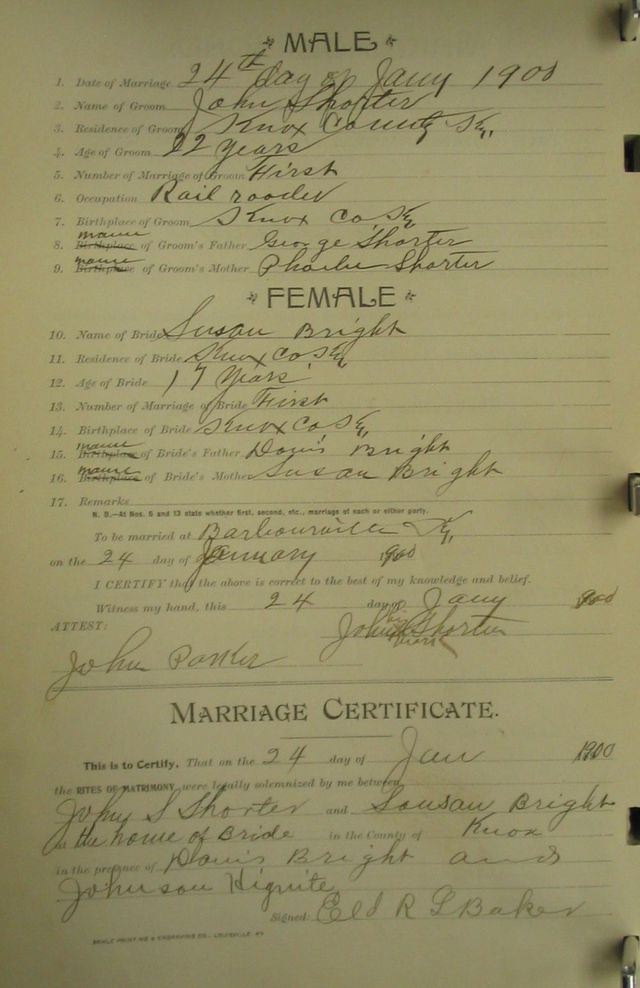 MALE
1. Date of Marriage 24th day of Jany 1900
2. Name of Groom John Shorter
3. Residence of Groom Knox County Ky.
4. Age of Groom 22 years
5. Number of Marriage of Groom First
6. Occupation Rail roader
7. Birthplace of Groom Knox Co Ky
8. Birthplace name of Groom's Father George Shorter
9. Birthplace name of Groom's Mother Phoebe Shorter
FEMALE
10. Name of Bride Susan Bright
11. Residence of Bride Knox Co Ky
12. Age of Bride 17 Years
13. Number of Marriage of Bride First
14. Birthplace of Bride Knox Co Ky
15. Birthplace name of Bride's Father Bright
16. Birthplace name of Bride's Mother Susan Bright
17. Remarks
N. B.—At Nos. 5 and 13 state whether first, second, etc., marriage of each or either party.
To be married at Barbourville Ky,
on the 24 day of January 1900
I CERTIFY that the above is correct to the best of my knowledge and belief.
Witness my hand, this 24 day of Jany 900
ATTEST: John his X mark Shorter
John Parker
MARRIAGE CERTIFICATE.
This is to Certify, That on the 24 day of Jan 1900
the RITES OF MATRIMONY were legally solemnized by me between
John S Shorter and Sousan Bright
at the home of Bride in the County of Knox
in the presence of Bright and
Johnson Hignite
Signed: Eld R G Baker